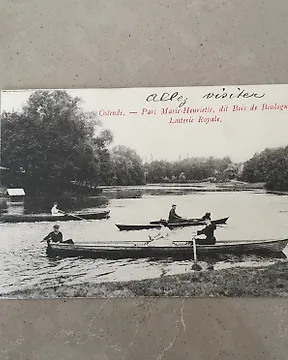 Allez visiter
Ostende. — Parc Marie-Henriette, dit Bois de Boulogne
Laiterie Royale.